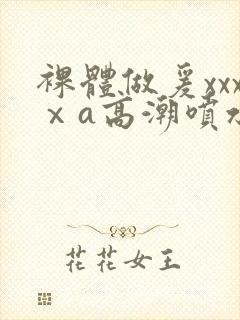 裸體做爰xxx
x a高潮噴水
花花女王